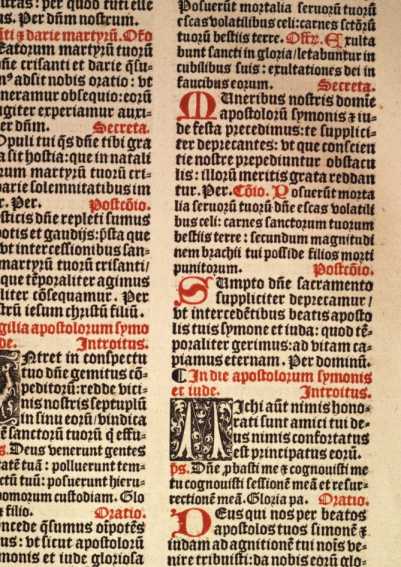 uras: per quod tuti elle
us. Per dñm nostrum.
ti ⁊ darie martyrũ. Offo
Beatorum martyrũ tuorũ
ñe crisanti et darie q̃su-
nˢ adsit nobis oratio: vt
neramur obsequio: eorũ
igiter experiamur auxi-
er dñm. Secreta.
Opuli tui q̃s dñe tibi gra
a sit hostia: que in natali
rum martyrũ tuorũ cri-
darie solemnitatibus im
r. Per. Postcõio.
isticis dñe repleti sumus
potis et gaudijs: p̃sta que
vt intercessionibus san-
martyrũ tuorũ crisanti/
que tẽporaliter agimus
liter cõsequamur. Per
strũ iesum christũ filiũ.
gilia apostolorum symo
de. Introitus.
Ntret in conspectu
tuo dñe gemitus cõ-
peditorũ: redde vici-
nis nostris septuplũ
in sinu eorũ/ vindica
ẽ sanctorũ tuorũ q̃ effu-
s. Deus venerunt gentes
tatẽ tuã: polluerunt tem-
ctũ tuũ: posuerunt hieru-
pomorum custodiam. Glo
⁊ filio. Oratio.
oncede q̃sumus oĩpotẽs
us: vt sicut apostolorũ
monis et iude gloriosa
Posuerũt mortalia seruorũ tuorũ
escas volatilibus celi: carnes sctõrũ
tuorũ bestiis terre. Offr. Exulta
bunt sancti in gloria/ letabuntur in
cubilibus suis: exultationes dei in
faucibus eorum. Secreta.
MUneribus nostris domine
apostolorũ symonis ⁊ iu-
de festa precedimus: te supplici-
ter deprecantes: vt que conscien
tie nostre prepediuntur obstacu
lis: illorũ meritis grata reddan
tur. Per. Cõio. Posuerũt morta
lia seruorũ tuorũ dñe escas volatili
bus celi: carnes sanctorum tuorum
bestiis terre: secundum magnitudi
nem brachij tui posside filios morti
punitorum. Postcõio.
SUmpto dñe sacramento
suppliciter deprecamur/
vt intercedẽtibus beatis aposto
lis tuis symone et iuda: quod tẽ-
poraliter gerimus: ad vitam ca-
piamus eternam. Per dominũ.
¶ In die apostolorum symonis
et iude. Introitus.
MIchi aũt nimis hono-
rati sunt amici tui de-
us nimis confortatus
est principatus eorũ.
ps. Dñe ꝓbasti me ⁊ cognouisti me
tu cognouisti sessionẽ meã et resur-
rectionẽ meã. Gloria pa. Oratio.
DEus qui nos per beatos
apostolos tuos simonẽ ⁊
iudam ad agnitionẽ tui noĩs ve-
nire tribuisti: da nobis eorũ glo-